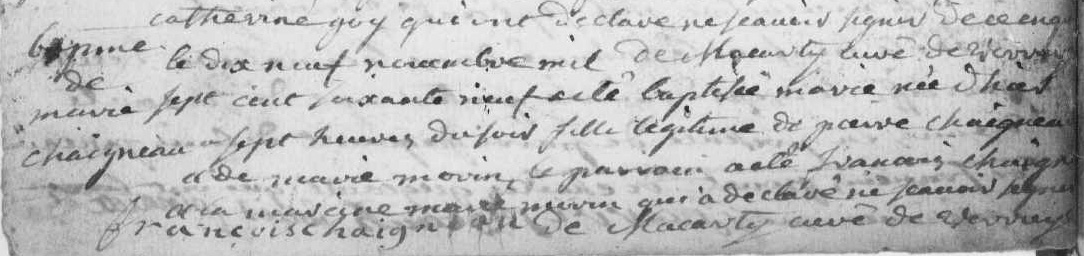 catherine guy qui ont declare ne scavoir signer de ce enquis
de Macarty curé de verruye
bapteme
de
marie
chaigneau
le dix neuf novembre mil
sept cent soixante neuf a eté baptisée marie née d'hier
a sept heures du soir fille legitime de pierre chaigneau
et de marie morin, le parrain a eté francois chaigneau
et la maraine marie morin qui a declaré ne scavoir signer
françois chaigneau de Macarty curé de verruye